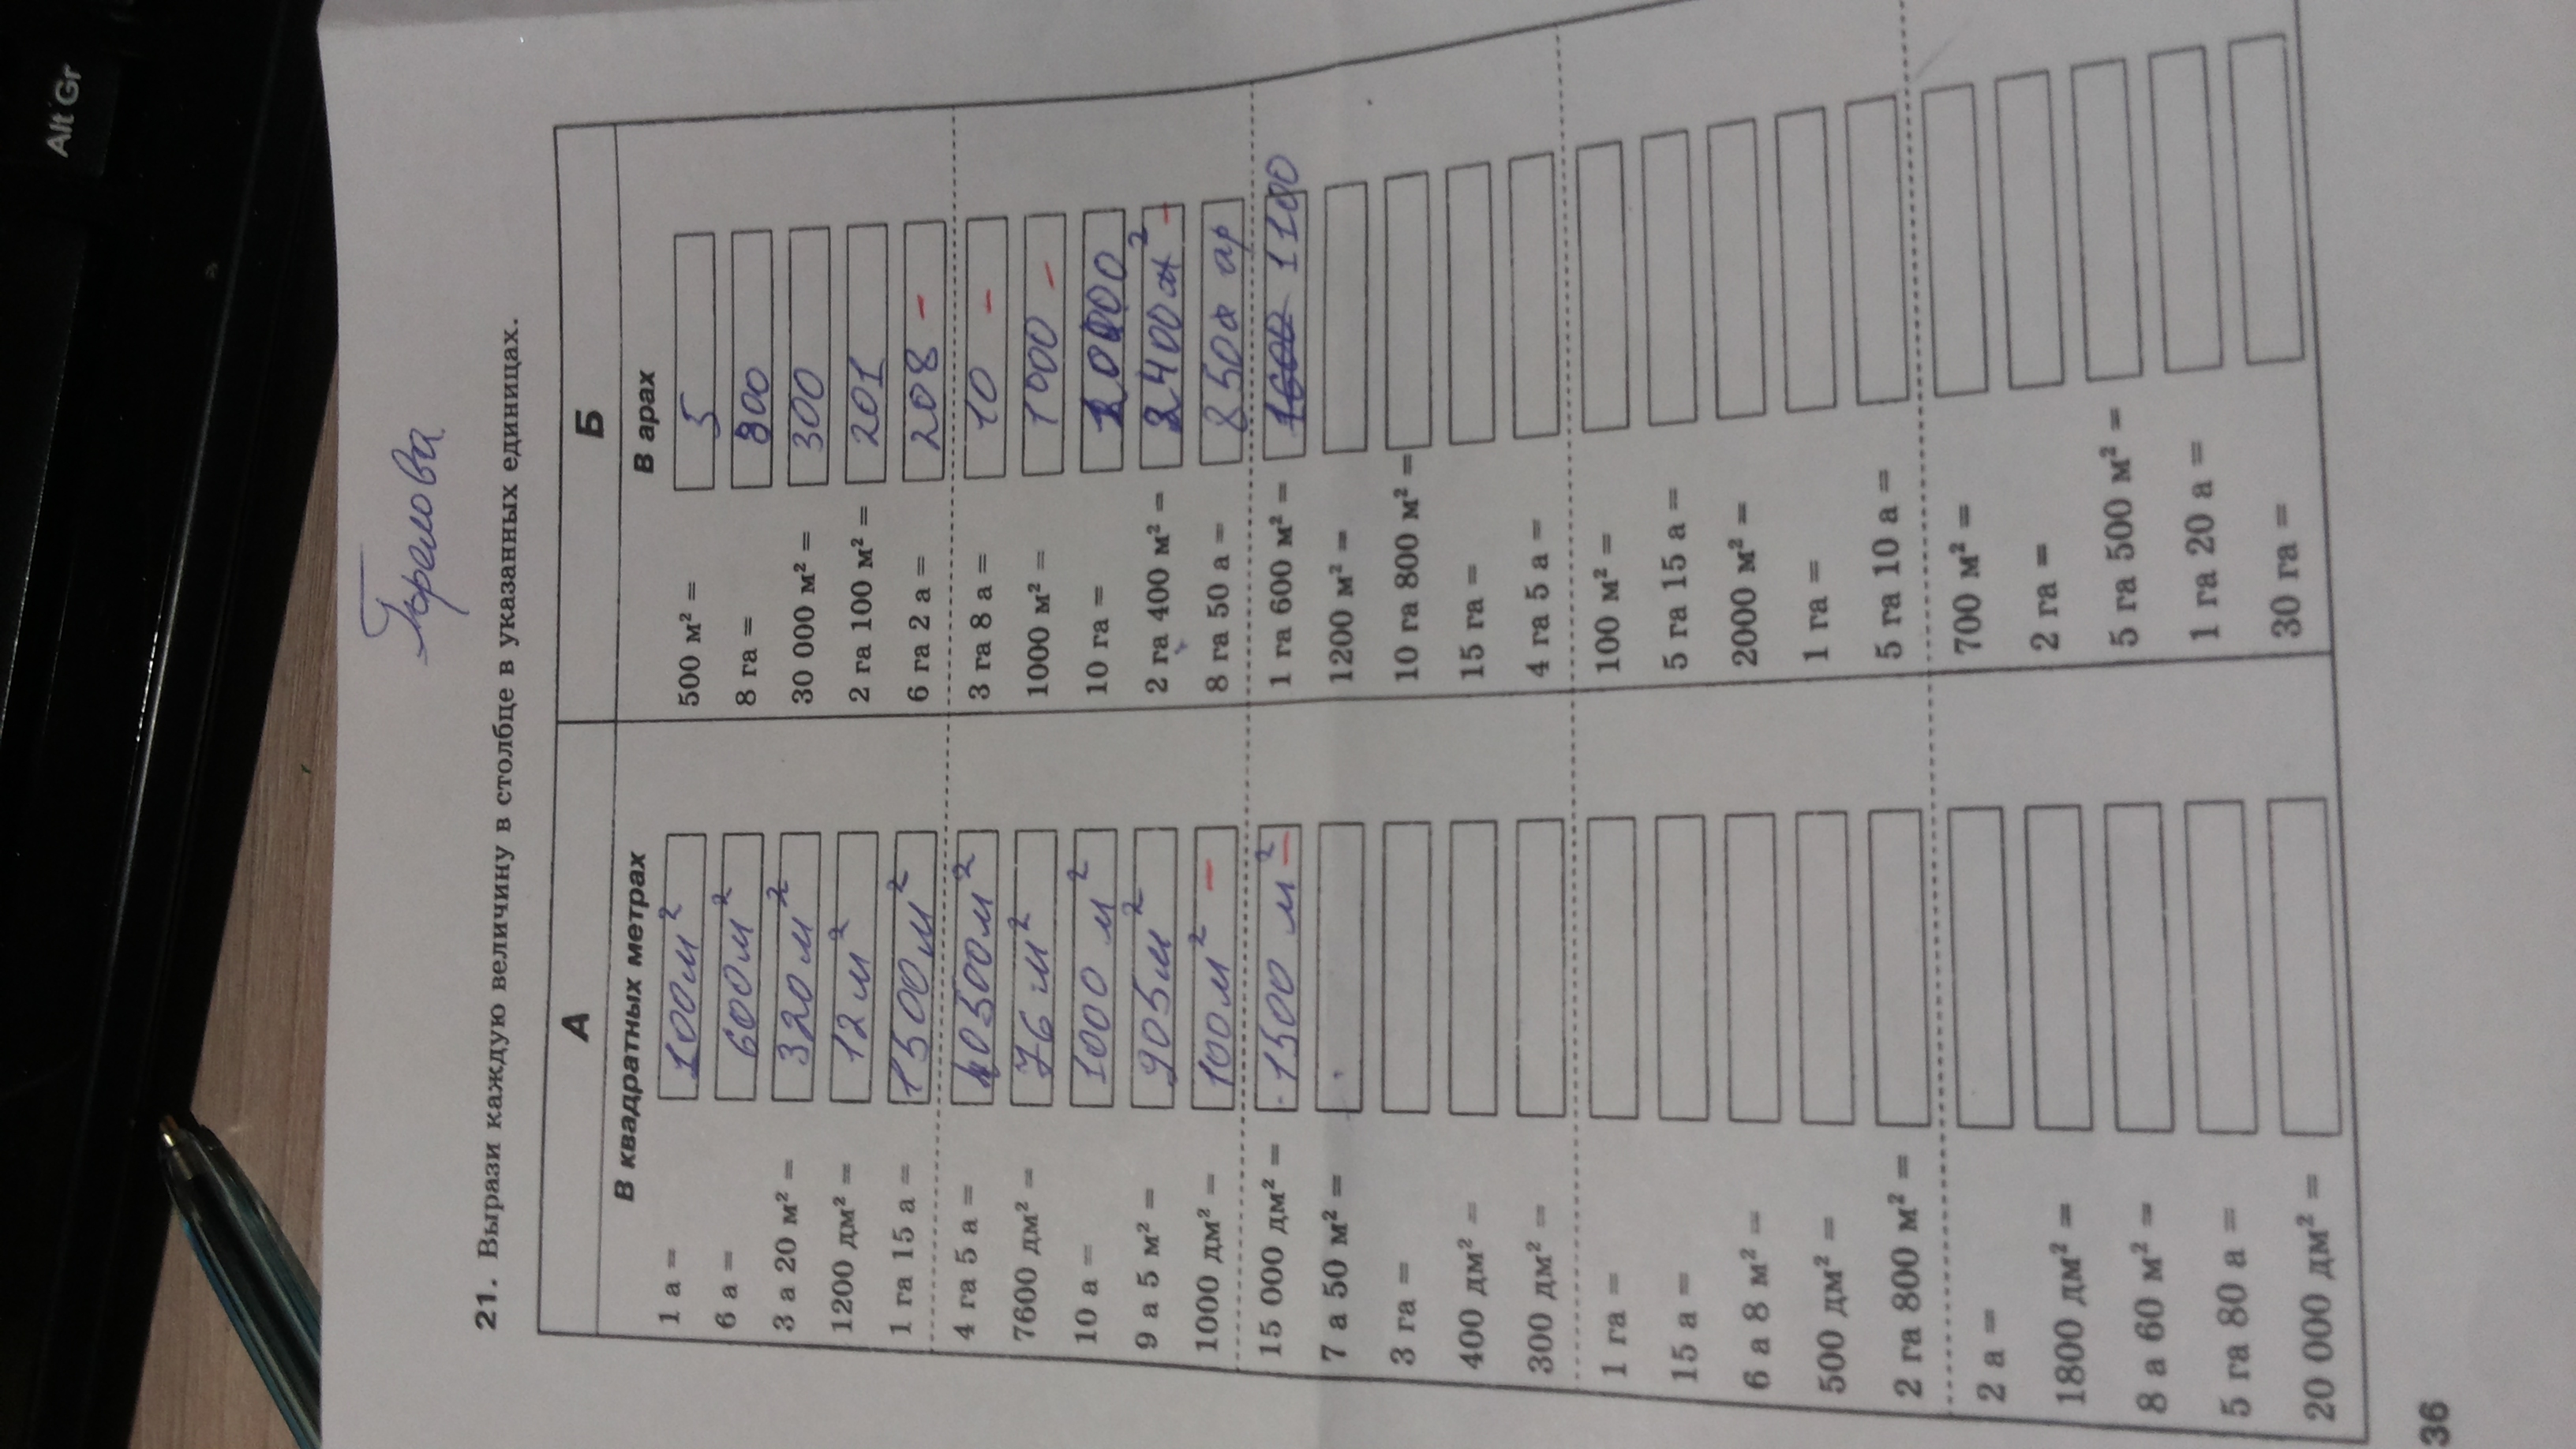 Alt Gr
21. Вырази каждую величину в столбце в указанных единицах.
А
Б
В квадратных метрах
В арах
1 а = 100м²
500 м² = 5
6 а = 600м²
8 га = 800
3 а 20 м² = 320 м²
30 000 м² = 300
1200 дм² = 12 м²
2 га 100 м² = 201
1 га 15 а = 1500м²
6 га 2 а = 208 –
4 га 5 а = 40500м²
3 га 8 а = 10 –
7600 дм² = 76 м²
1000 м² = 1000 –
10 а = 1000 м²
10 га =
9 а 5 м² = 905м²
2 га 400 м² =
1000 дм² = 100м² –
8 га 50 а = 850
15 000 дм² = 1500 м² –
1 га 600 м² = 1100
7 а 50 м² =
1200 м² =
3 га =
10 га 800 м² =
400 дм² =
15 га =
300 дм² =
4 га 5 а =
1 га =
100 м² =
15 а =
5 га 15 а =
6 а 8 м² =
2000 м² =
500 дм² =
1 га =
2 га 800 м² =
5 га 10 а =
2 а =
700 м² =
1800 дм² =
2 га =
8 а 60 м² =
5 га 500 м² =
5 га 80 а =
1 га 20 а =
20 000 дм² =
30 га =
36